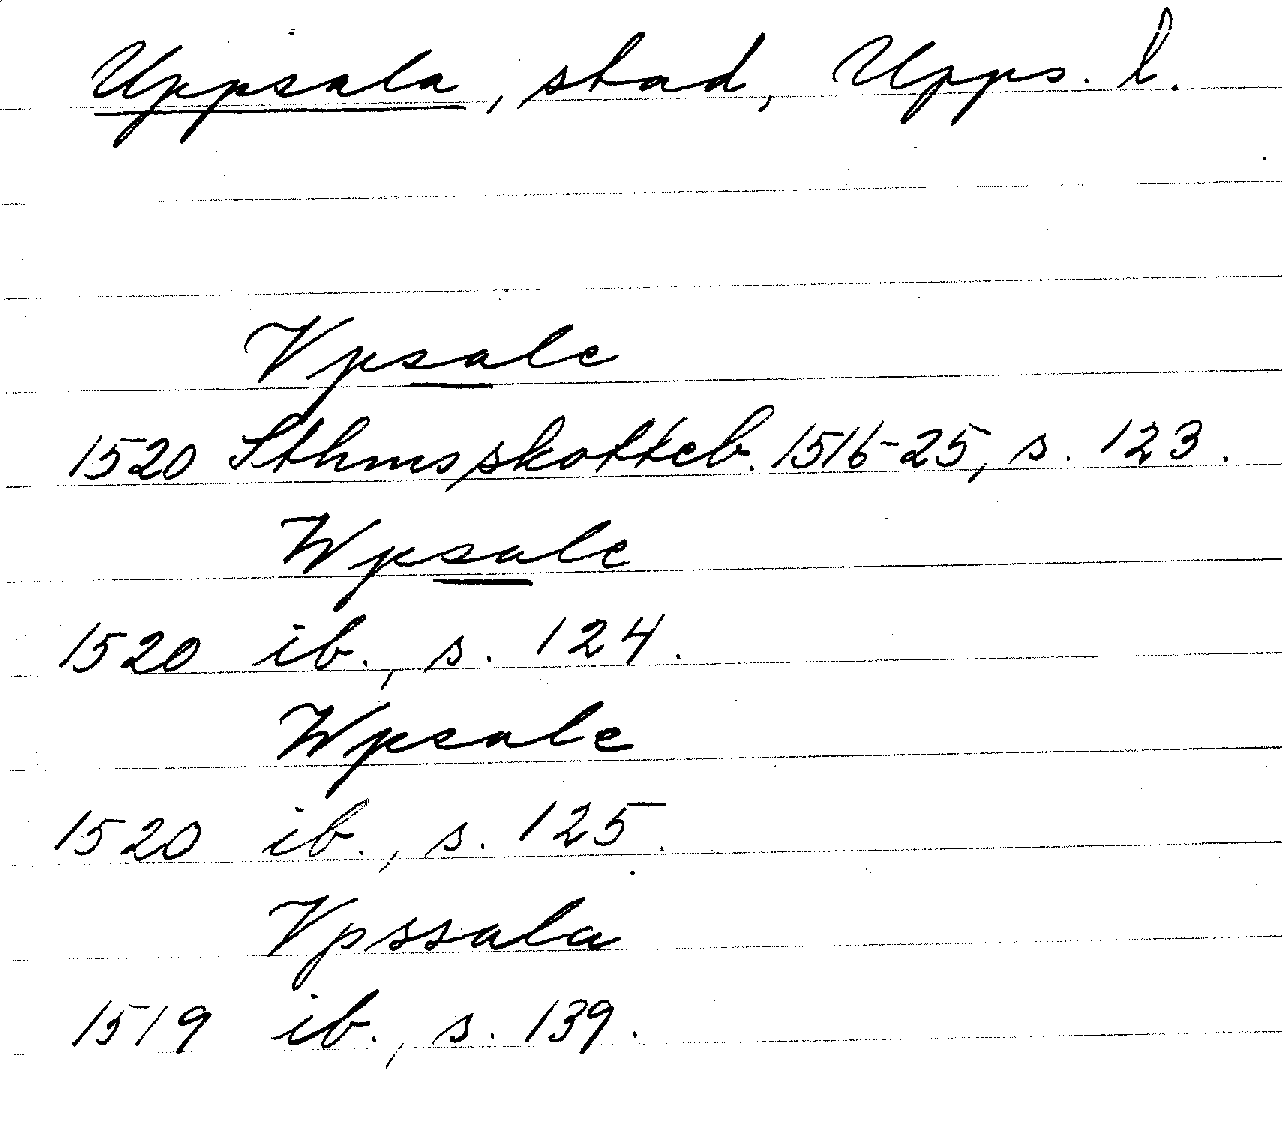 Uppsala, stad, Upps. l.
Vpsale
1520 Sthms skotteb. 1516-25, s. 123.
Wpsale
1520 ib., s. 124.
Wpsale
1520 ib., s. 125.
Vpssala
1519 ib., s. 139.